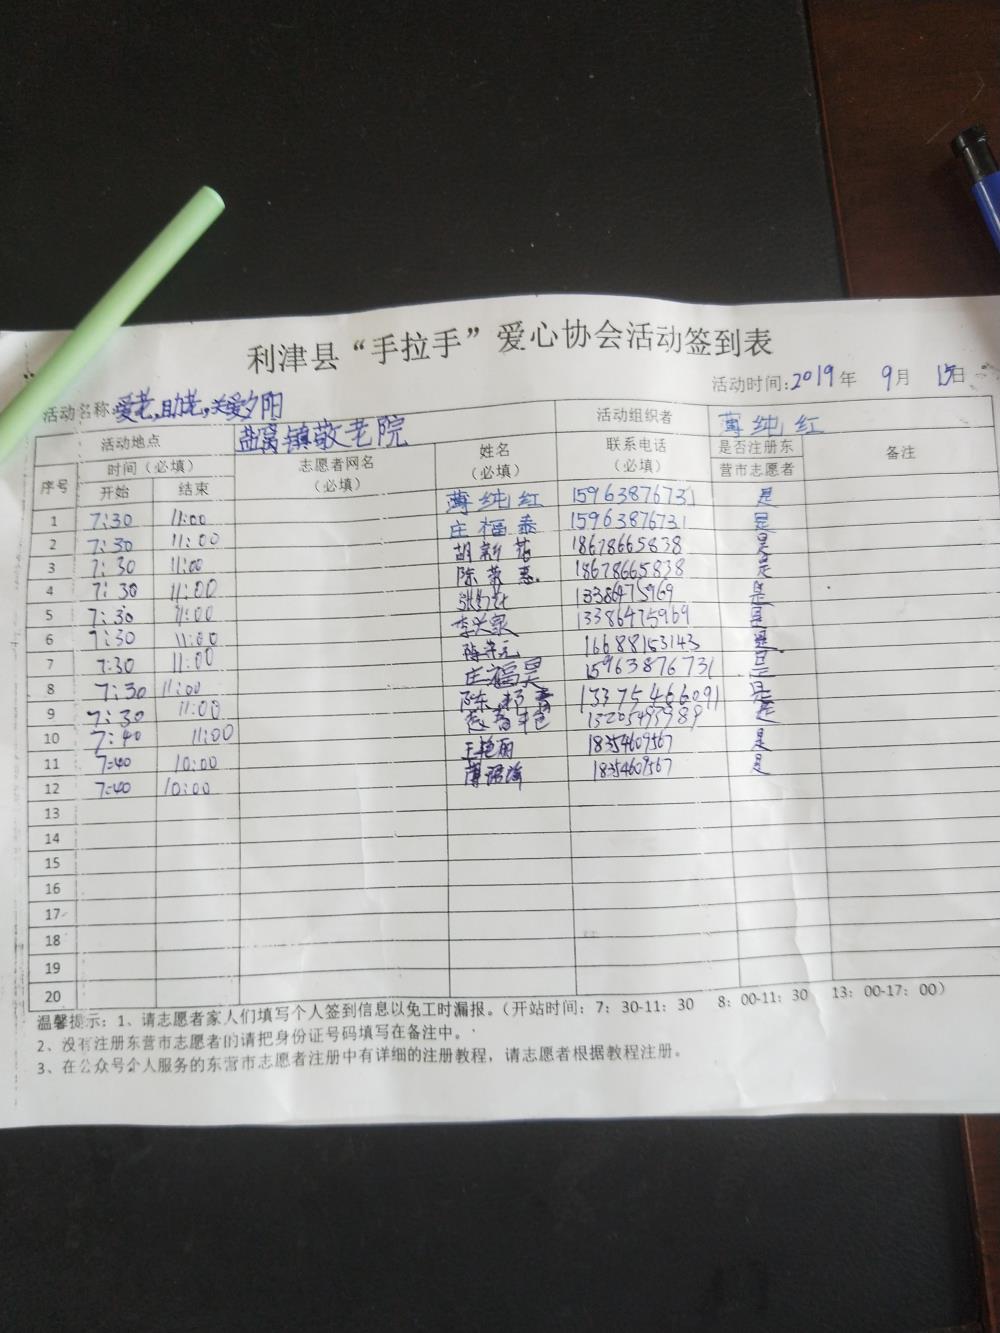 利津县“手拉手”爱心协会活动签到表
活动时间:2019年 9月 15日
活动名称:爱老,助老,关爱夕阳
活动地点 盐窝镇敬老院 活动组织者 薄纯红
序号 时间（必填） 志愿者网名（必填） 姓名（必填） 联系电话（必填） 是否注册东营市志愿者 备注
开始 结束
1 7:30 11:00 薄纯红 15963876731 是
2 7:30 11:00 庄福泰 15963876731 是
3 7:30 11:00 胡新 18678665838 是
4 7:30 11:00 陈 18678665838 是
5 7:30 11:00 13386475969 是
6 7:30 11:00 李兴泉 13386475969 是
7 7:30 11:00 16688153143 是
8 7:30 11:00 庄福昊 15963876731 是
9 7:30 11:00 陈 13375466091 是
10 7:40 11:00 是
11 7:40 10:00 王艳丽 18354609567 是
12 7:40 10:00 薄 18354609567 是
13
14
15
16
17
18
19
20
温馨提示：1、请志愿者家人们填写个人签到信息以免工时漏报。（开站时间：7：30-11：30 8：00-11：30 13：00-17：00）
2、没有注册东营市志愿者的请把身份证号码填写在备注中。
3、在公众号个人服务的东营市志愿者注册中有详细的注册教程，请志愿者根据教程注册。